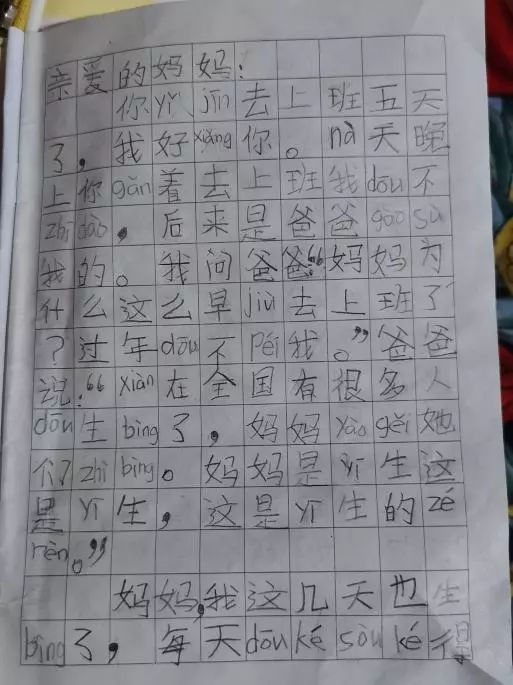 亲爱的妈妈:
你yǐ jīn去上班五天
了,我好xiǎng你。nà天晚
上你gǎn着去上班我dōu不
zhī dào,后来是爸爸gào sù
我的。我问爸爸:“妈妈为
什么这么早jiù去上班了
?过年dōu不péi我。”爸爸
说:“xiàn在全国有很多人
dōu生bìng了,妈妈yào gěi她
们zhì bìng。妈妈是yī生这
是yī生,这是yī生的zé
rèn。”
妈妈,我这几天也生
bìng了,每天dōu ké sòu ké得